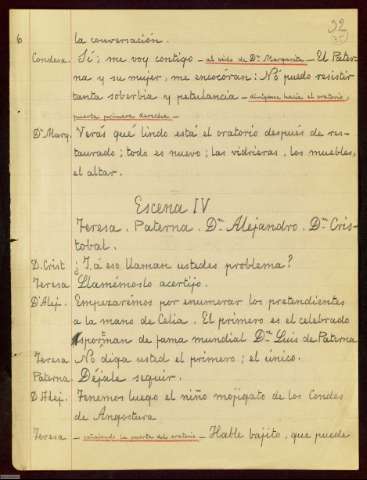 32
6
la conversación.
Condesa. Sí; me voy contigo – al oído de Dª Margarita – El Pater-
na y su mujer, me encocoran: No puedo resistir
tanta soberbia y petulancia – dirígense hacia el oratorio,
puerta primera derecha –
Dª Marg. Verás qué lindo está el oratorio después de res-
taurado; todo es nuevo; las vidrieras, los muebles,
el altar.
Escena IV
Teresa. Paterna. Dn Alejandro. Dn Cris-
tobal.
D. Crist. ¿Y á eso llaman ustedes problema?
Teresa Llamémoslo acertijo.
Dn Alej. Empezaremos por enumerar los pretendientes
a la mano de Celia. El primero es el celebrado
sporman de fama mundial Dn Luis de Paterna
Teresa No diga usted el primero; el único.
Paterna. Déjale seguir.
D. Alej. Tenemos luego el niño mojigato de los Condes
de Angostura
Teresa – señalando la puerta del oratorio – Hable bajito, que puede